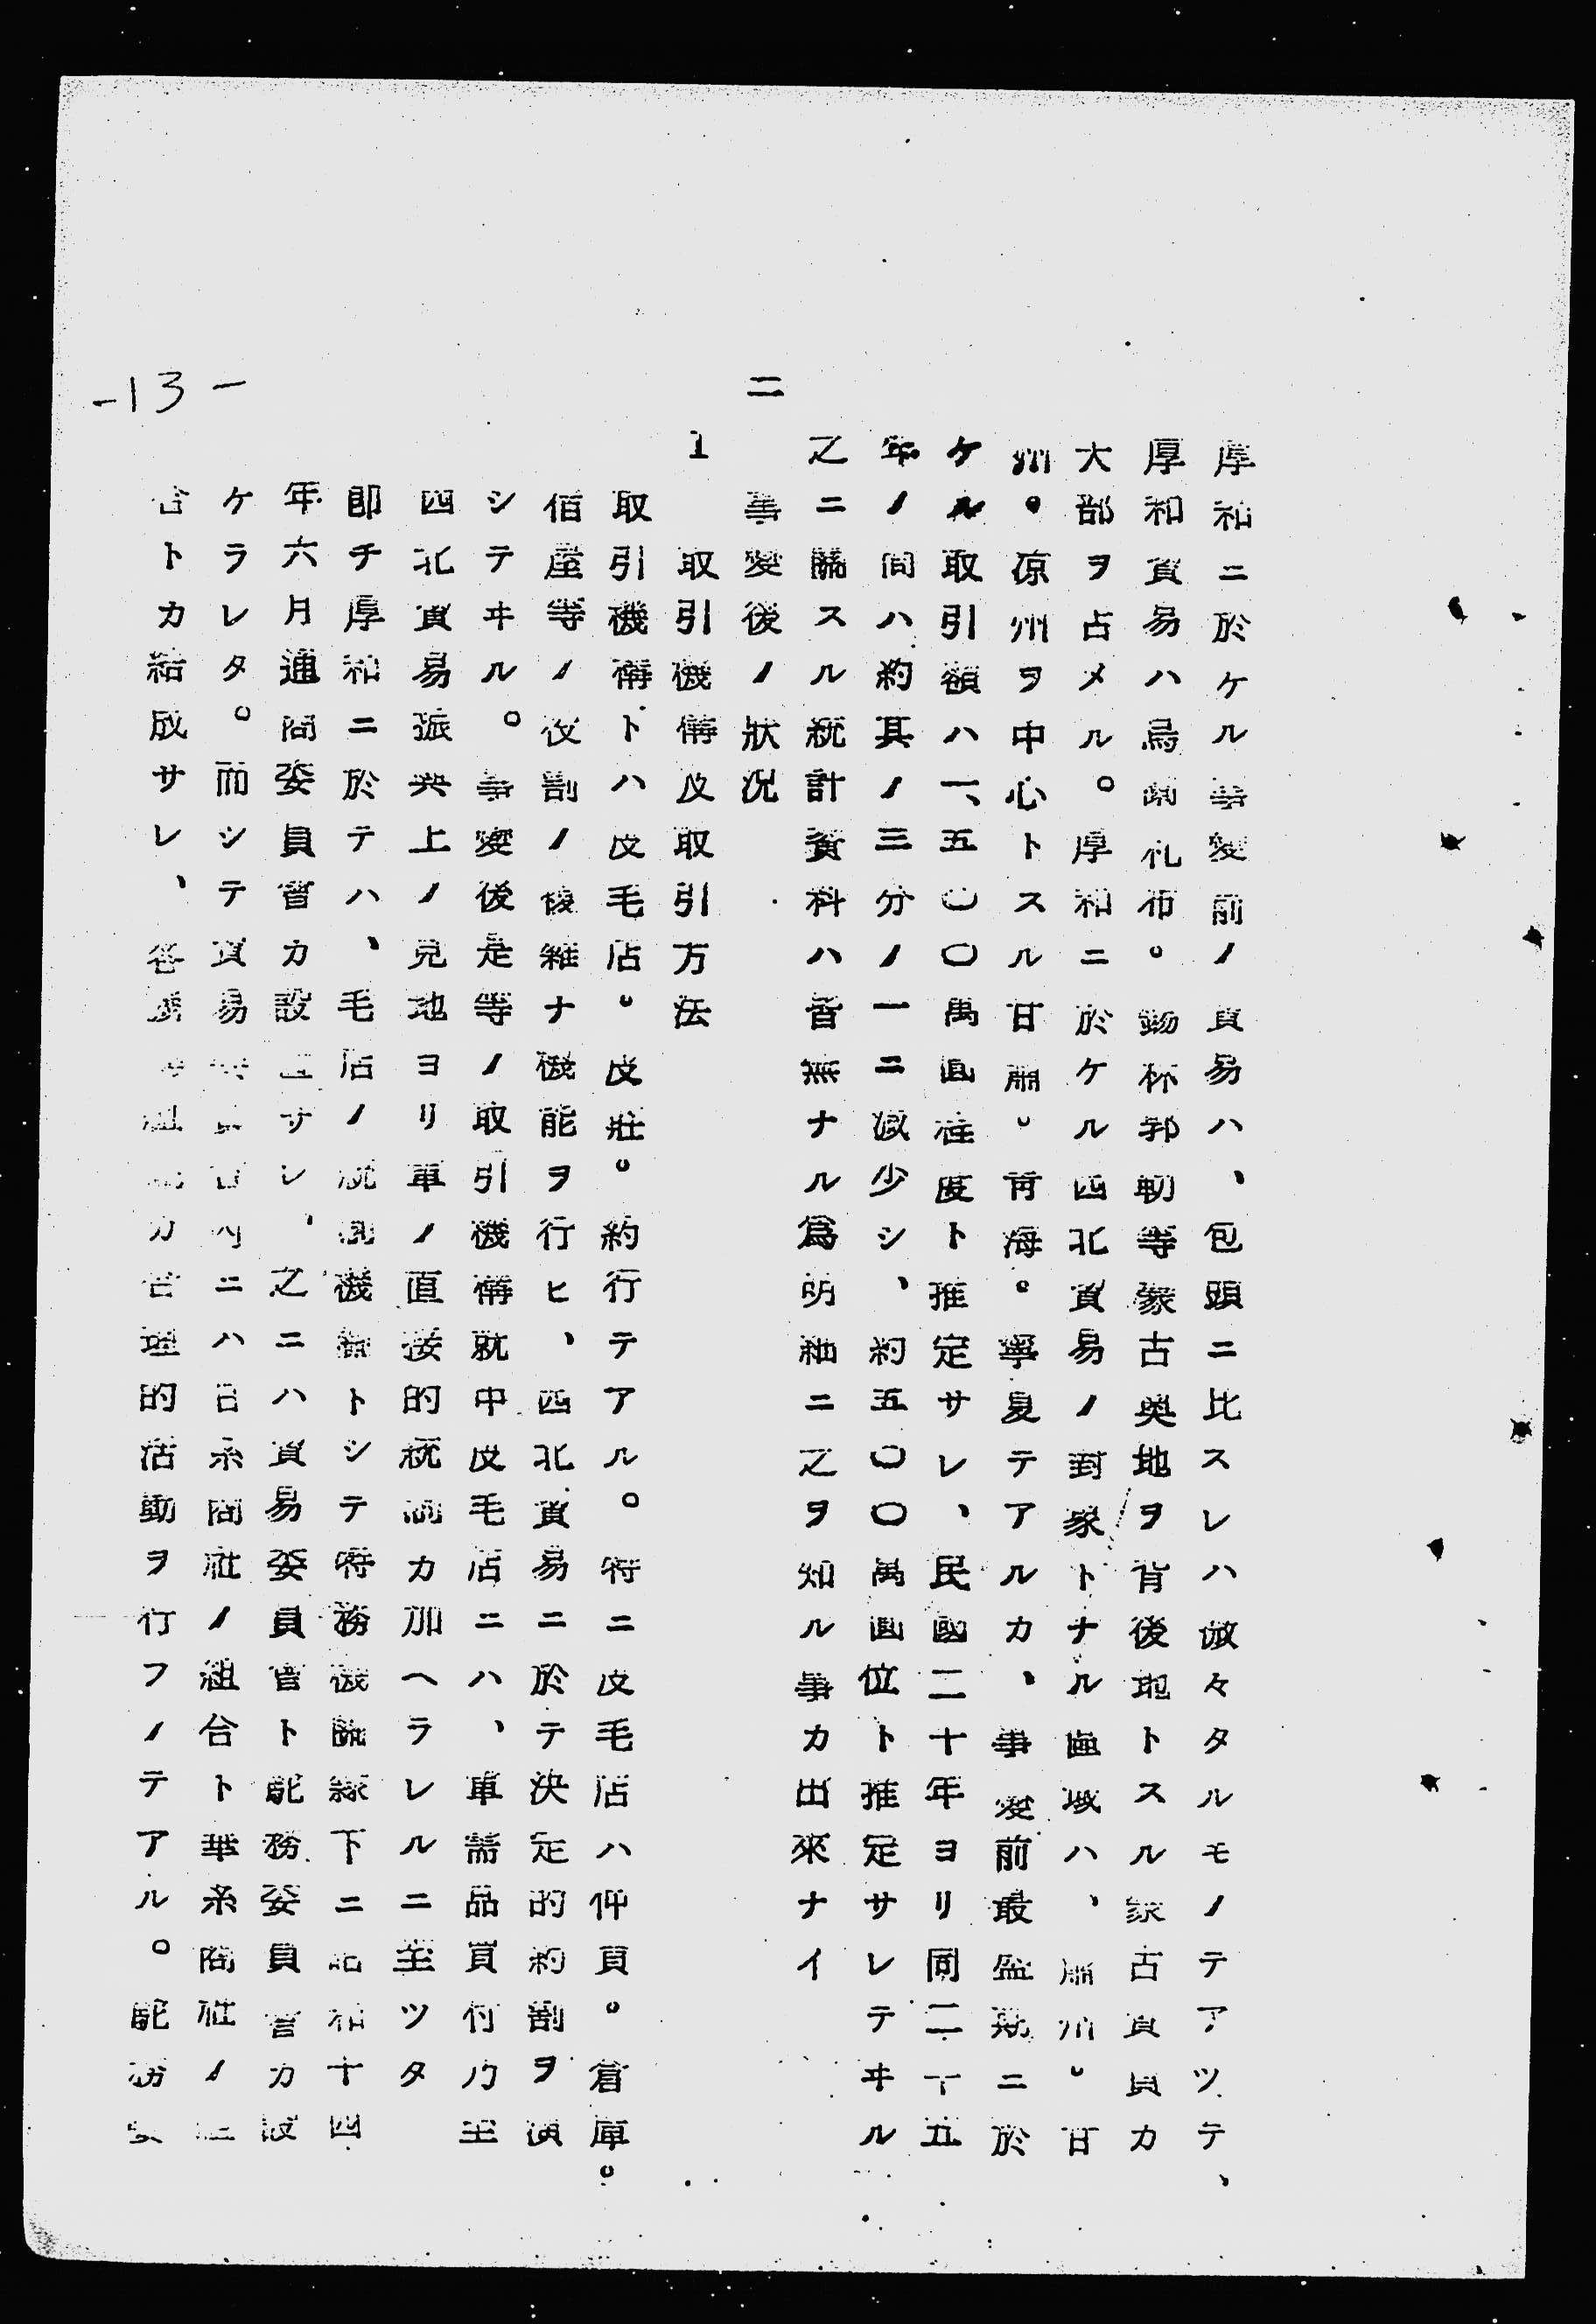 厚和ニ於ケル事變前ノ貿易ハ、包頭ニ比スレハ微々タルモノテアツテ、
厚和貿易ハ烏蘭札布。錫林郭勒等蒙古奥地ヲ背後地トスル蒙古貿易カ
大部ヲ占メル。厚和ニ於ケル西北貿易ノ對象トナル區域ハ、肅州。甘
州。凉州ヲ中心トスル甘肅。青海。寧夏テアルカ、事變前最盛期ニ於
ケル取引額ハ一、五〇〇萬圓程度ト推定サレ、民國二十年ヨリ同二十五
年ノ間ハ約其ノ三分ノ一ニ減少シ、約五〇〇萬圓位ト推定サレテヰル
之ニ關スル統計資料ハ皆無ナル爲明細ニ之ヲ知ル事カ出來ナイ
二 事變後ノ狀況
1 取引機構及取引方法
取引機構トハ皮毛店。皮莊。約行テアル。特ニ皮毛店ハ仲買。倉庫。
宿屋等ノ役割ノ複雜ナ機能ヲ行ヒ、西北貿易ニ於テ決定的約割ヲ演
シテヰル。事變後是等ノ取引機構就中皮毛店ニハ、軍需品買付乃至
西北貿易振興上ノ見地ヨリ軍ノ直接的統制カ加ヘラレルニ至ツタ
即チ厚和ニ於テハ、毛店ノ統制機構トシテ特務機關隷下ニ昭和十四
年六月通商委員會カ設置サレ、之ニハ貿易委員會ト駝務委員會カ設
ケラレタ。而シテ貿易委員會内ニハ日系商社ノ組合ト華系商社ノ
合トカ結成サレ、各カ管理的活動ヲ行フノテアル。駝務委
-13-